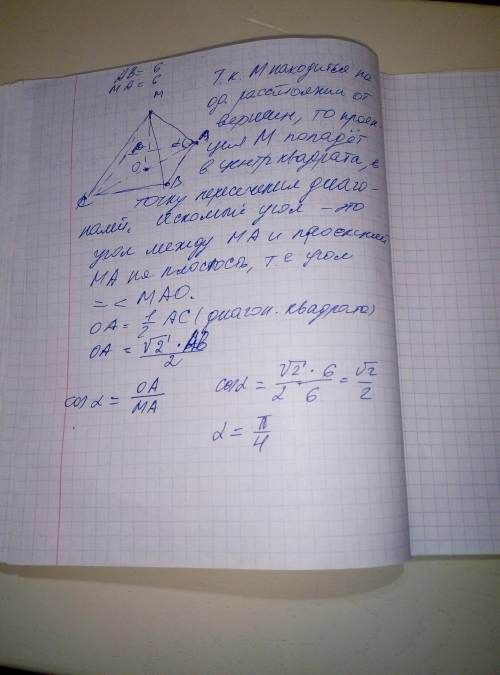 AB = 6
MA = 6
M
Т.к. М находится на
од расстоянии от
вершин, то проек-
ция М попадёт
в центр квадрата, в
точку пересечения диаго-
налей. искомый угол – это
угол между МА и проекцией
МА на плоскость, т.е угол
= < MAO.
A
O
B
C
OA = 1/2 AC (диагон. квадрата)
OA = √2 · AB / 2
cos α = OA / MA
cos α = √2 · 6 / 2 · 6 = √2 / 2
α = π / 4